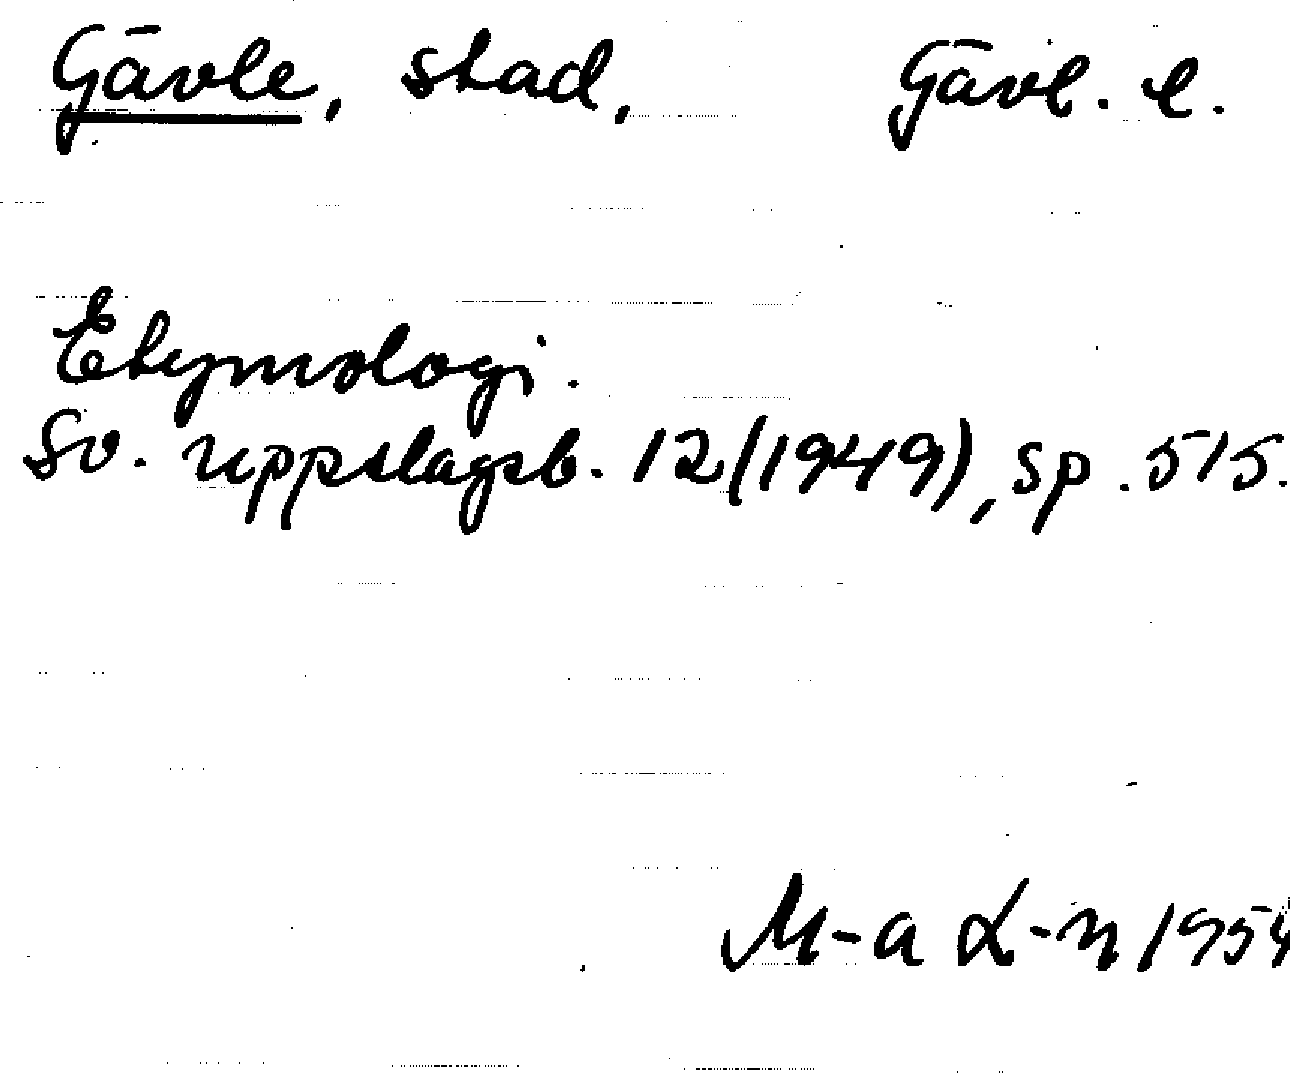 Gävle, stad, Gävl. l.
Etymologi.
Sv. uppslagsb. 12(1949), sp. 515.
M-a L-n 1954